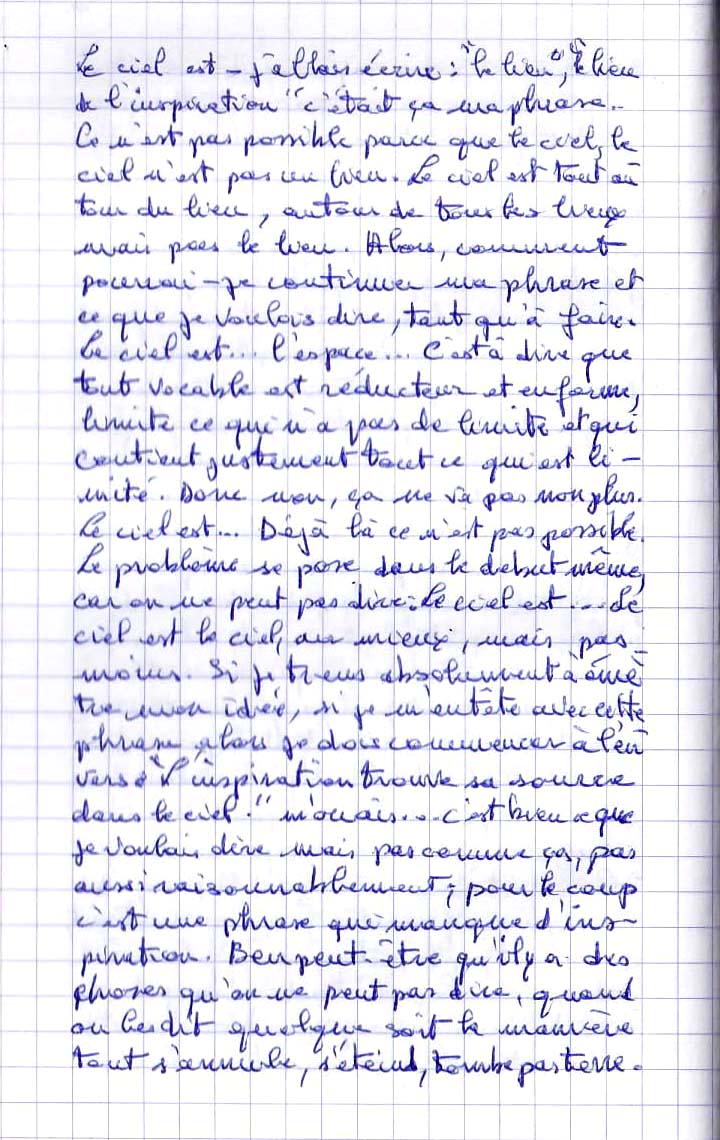 Le ciel est – j'allais écrire : "le lieu", "le lieu
de l'inspiration" c'était ça ma phrase..
Ce n'est pas possible parce que le ciel, le
ciel n'est pas un lieu. Le ciel est tout au
tour du lieu, autour de tous les lieux
mais pas le lieu. Alors, comment
pourrai-je continuer ma phrase et
ce que je voulais dire, tant qu'à faire.
Le ciel est... l'espace... C'est à dire que
tout vocable est réducteur et enferme,
limite ce qui n'a pas de limite et qui
contient justement tout ce qui est li-
mité. Donc non, ça ne va pas non plus.
Le ciel est... Déjà là ce n'est pas possible.
Le problème se pose dans le début même,
car on ne peut pas dire : Le ciel est... Le
ciel est le ciel, au mieux, mais pas
moins. Si je tiens absolument à émè
tre mon idée, si je m'entête avec cette
phrase alors je dois commencer à l'en
vers : "L'inspiration trouve sa source
dans le ciel." m'ouais... c'est bien ce que
je voulais dire mais pas comme ça, pas
aussi raisonnablement ; pour le coup
c'est une phrase qui manque d'ins-
piration. Ben peut-être qu'il y a des
choses qu'on ne peut pas dire, quand
on les dit quelque soit la manière
tout s'annule, s'éteind, tombe par terre.